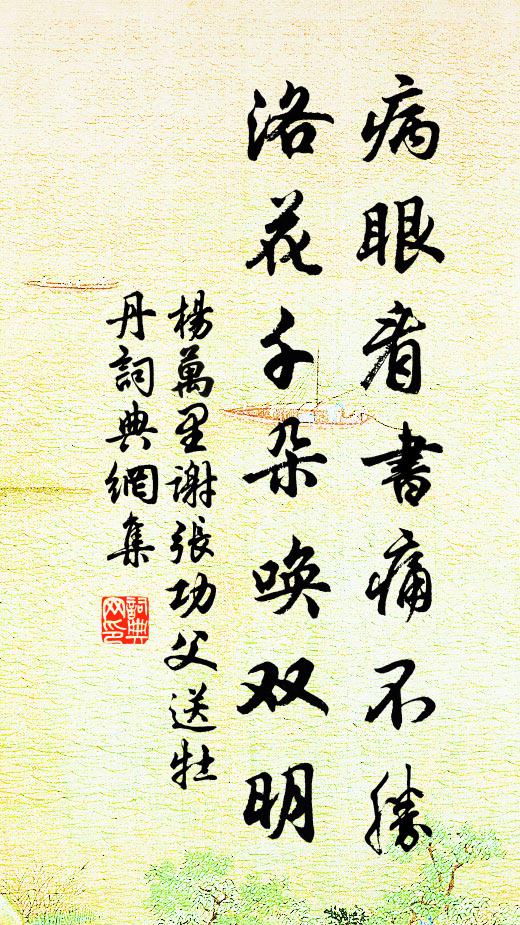 病眼看書痛不勝
洛花千朵唤双明
楊萬里謝張功父送牡
丹詞典網集
詞典
网印